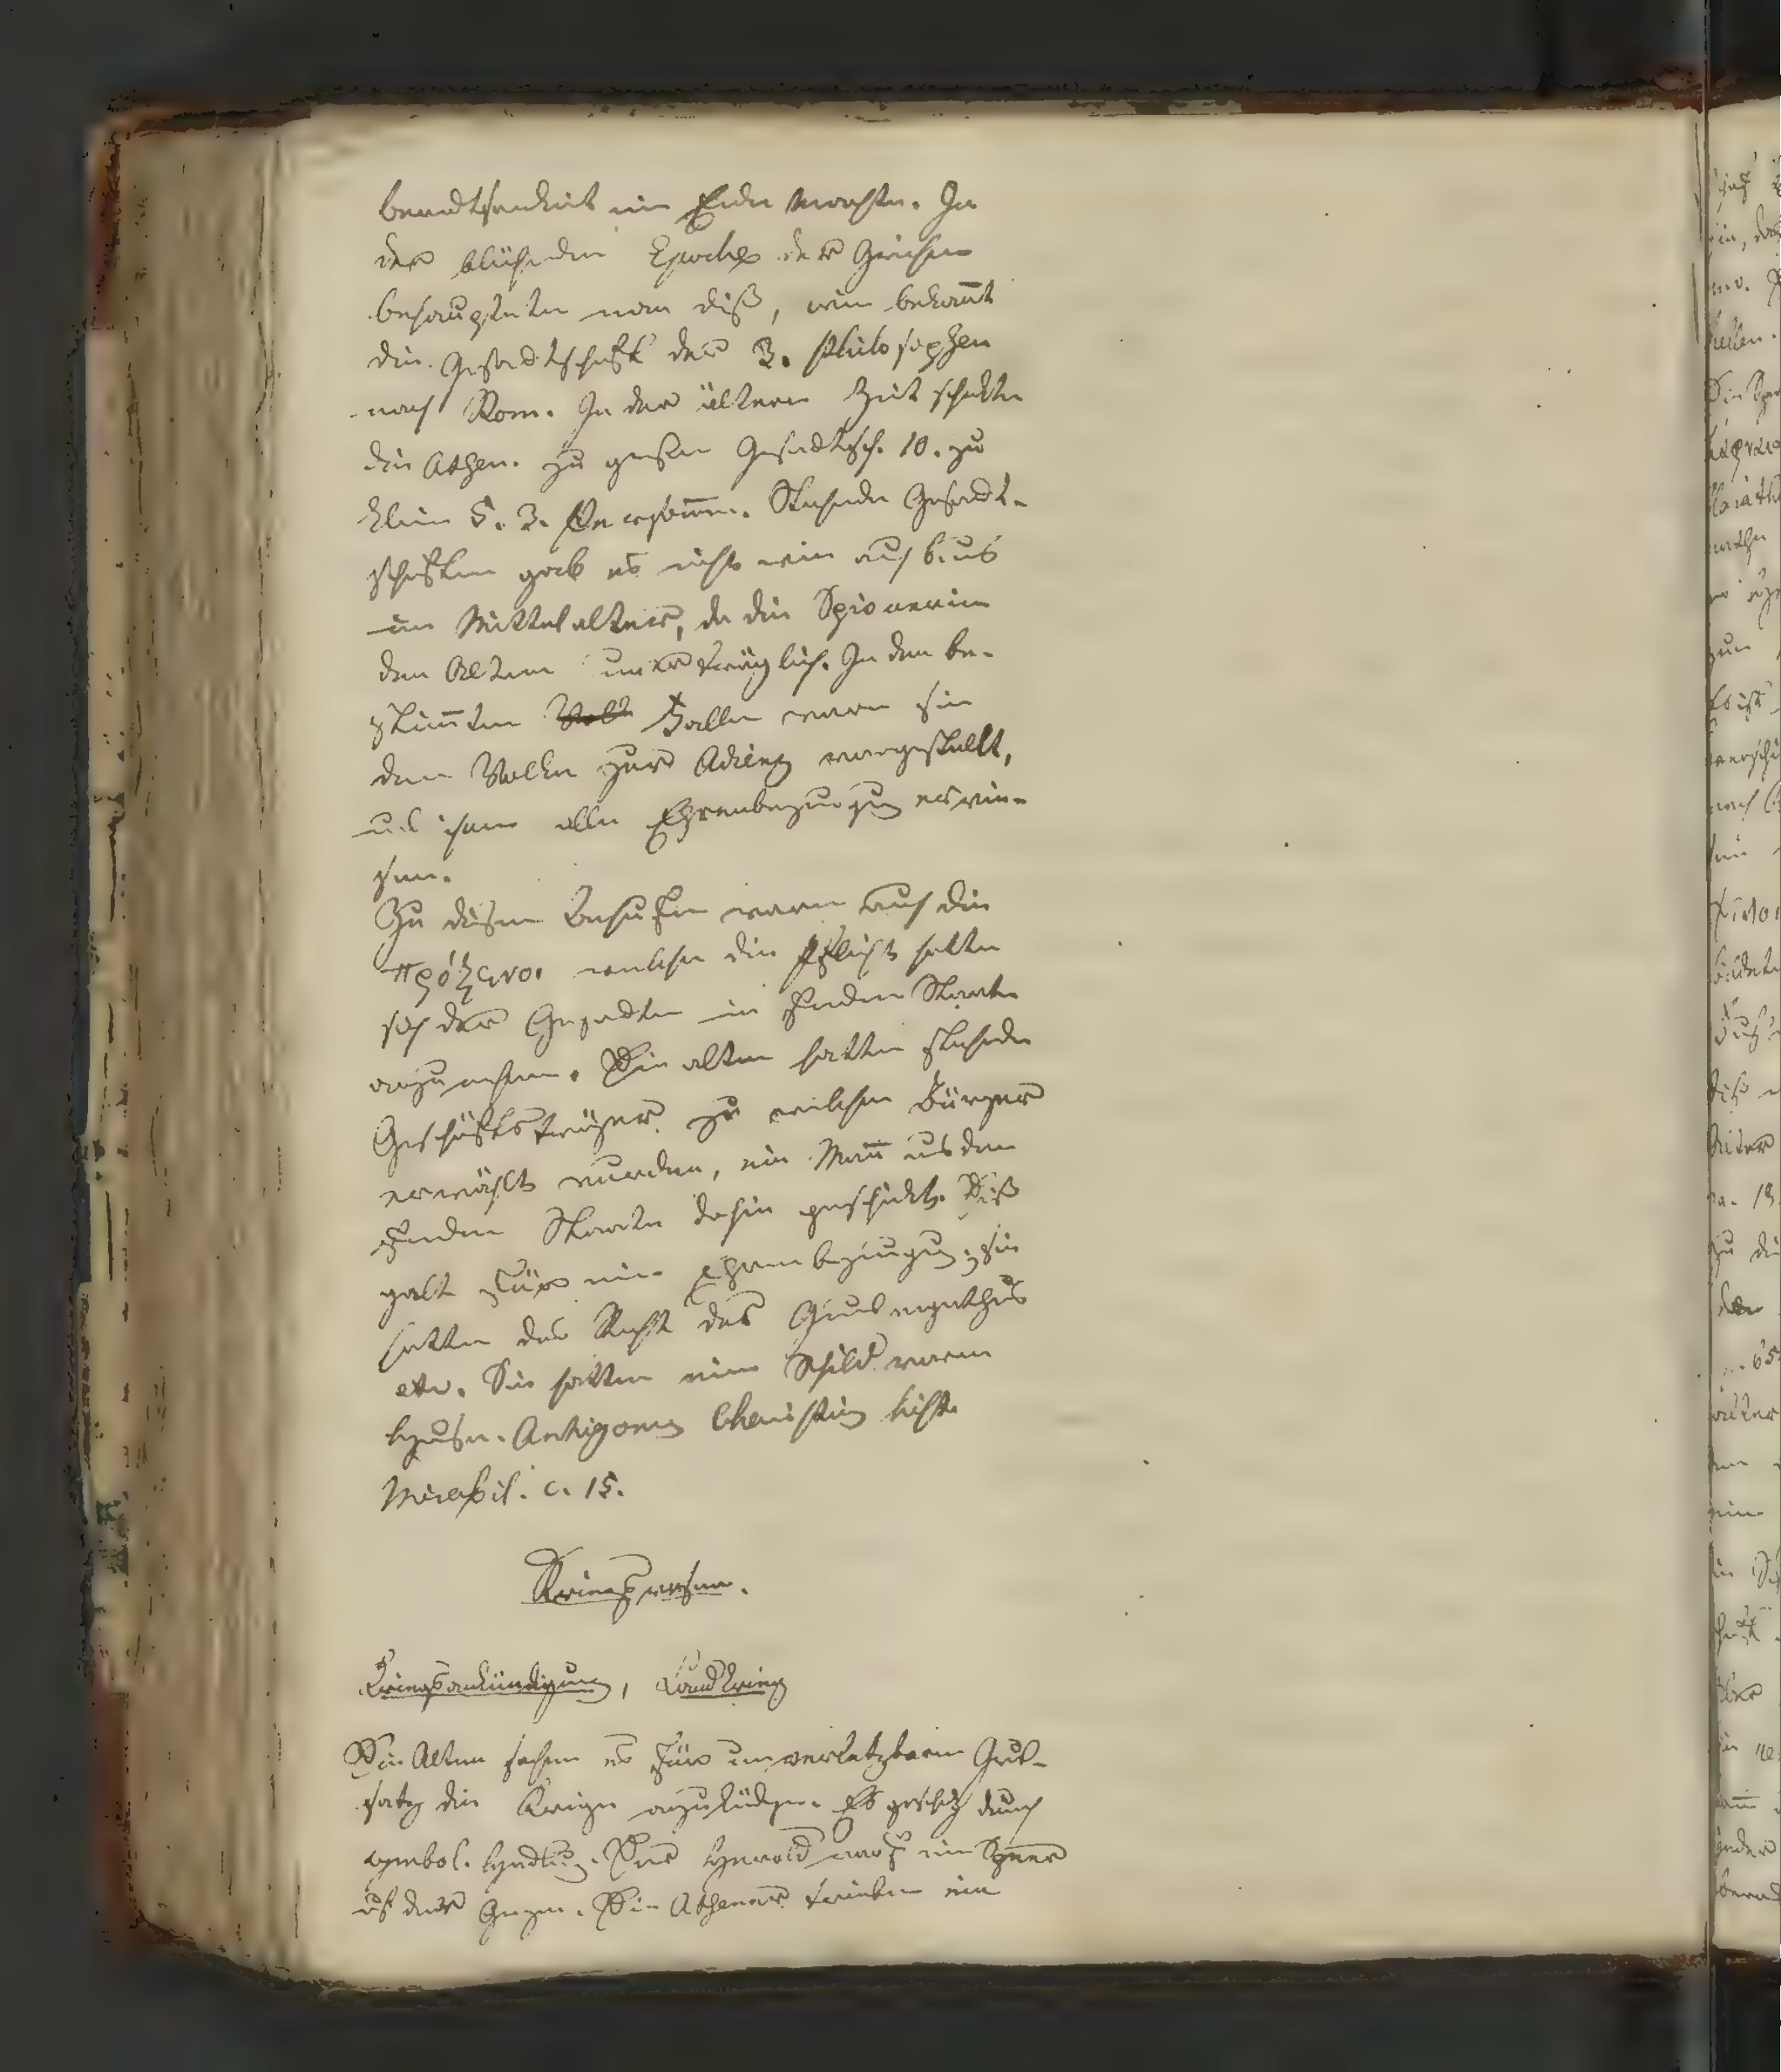 beredtsamkeit ein Ende machte. In
der blühenden Epoche der Griechen
behauptete man diß, wie bekan̄t
die Gesandtschaft der 3. Philosophen
nach Rom. In der ältern Zeit schikte
die Athen. zu großen Gesandtsch. 10. zu
kleinen 5. 3. Personen. Stehende Gesandt-
schaften gab es nicht wie auch bei uns
im Mittelalter, da die Spionerien
den Alten unerträglich. In den be-
stim̄ten Fällen waren sie
dem Volke zur Audienz vorgestellt,
und ihnen alle Ehrenbezeugung erwie-
sen.
Zu diesem Behufe waren auch die
πρόξενοι welche die Pflicht hatten
sich der Gesandten in fremden Staaten
anzunehmen. Die alten hatten stehende
Geschäftsträger zu welchen Bürger
erwählt wurden, ein Man̄ aus dem
fremden Staate dahin geschickt. Diß
galt für eine Ehrenbezeugung; sie
hatten das Recht des
etc. Sie hatten ein Schild vorm
Hause. Antigonus Charistius hist.
Mirabil. c. 15.
Kriegswesen.
Kriegsankündigung, Landkrieg
Die Alten sahen es für unverletzbaren Grund-
satz die Kriege anzukündigen. Es geschah durch
symbol. Handlung. Der Herold warf ein Speer
auf der Grenze. Die Athener trieben ein